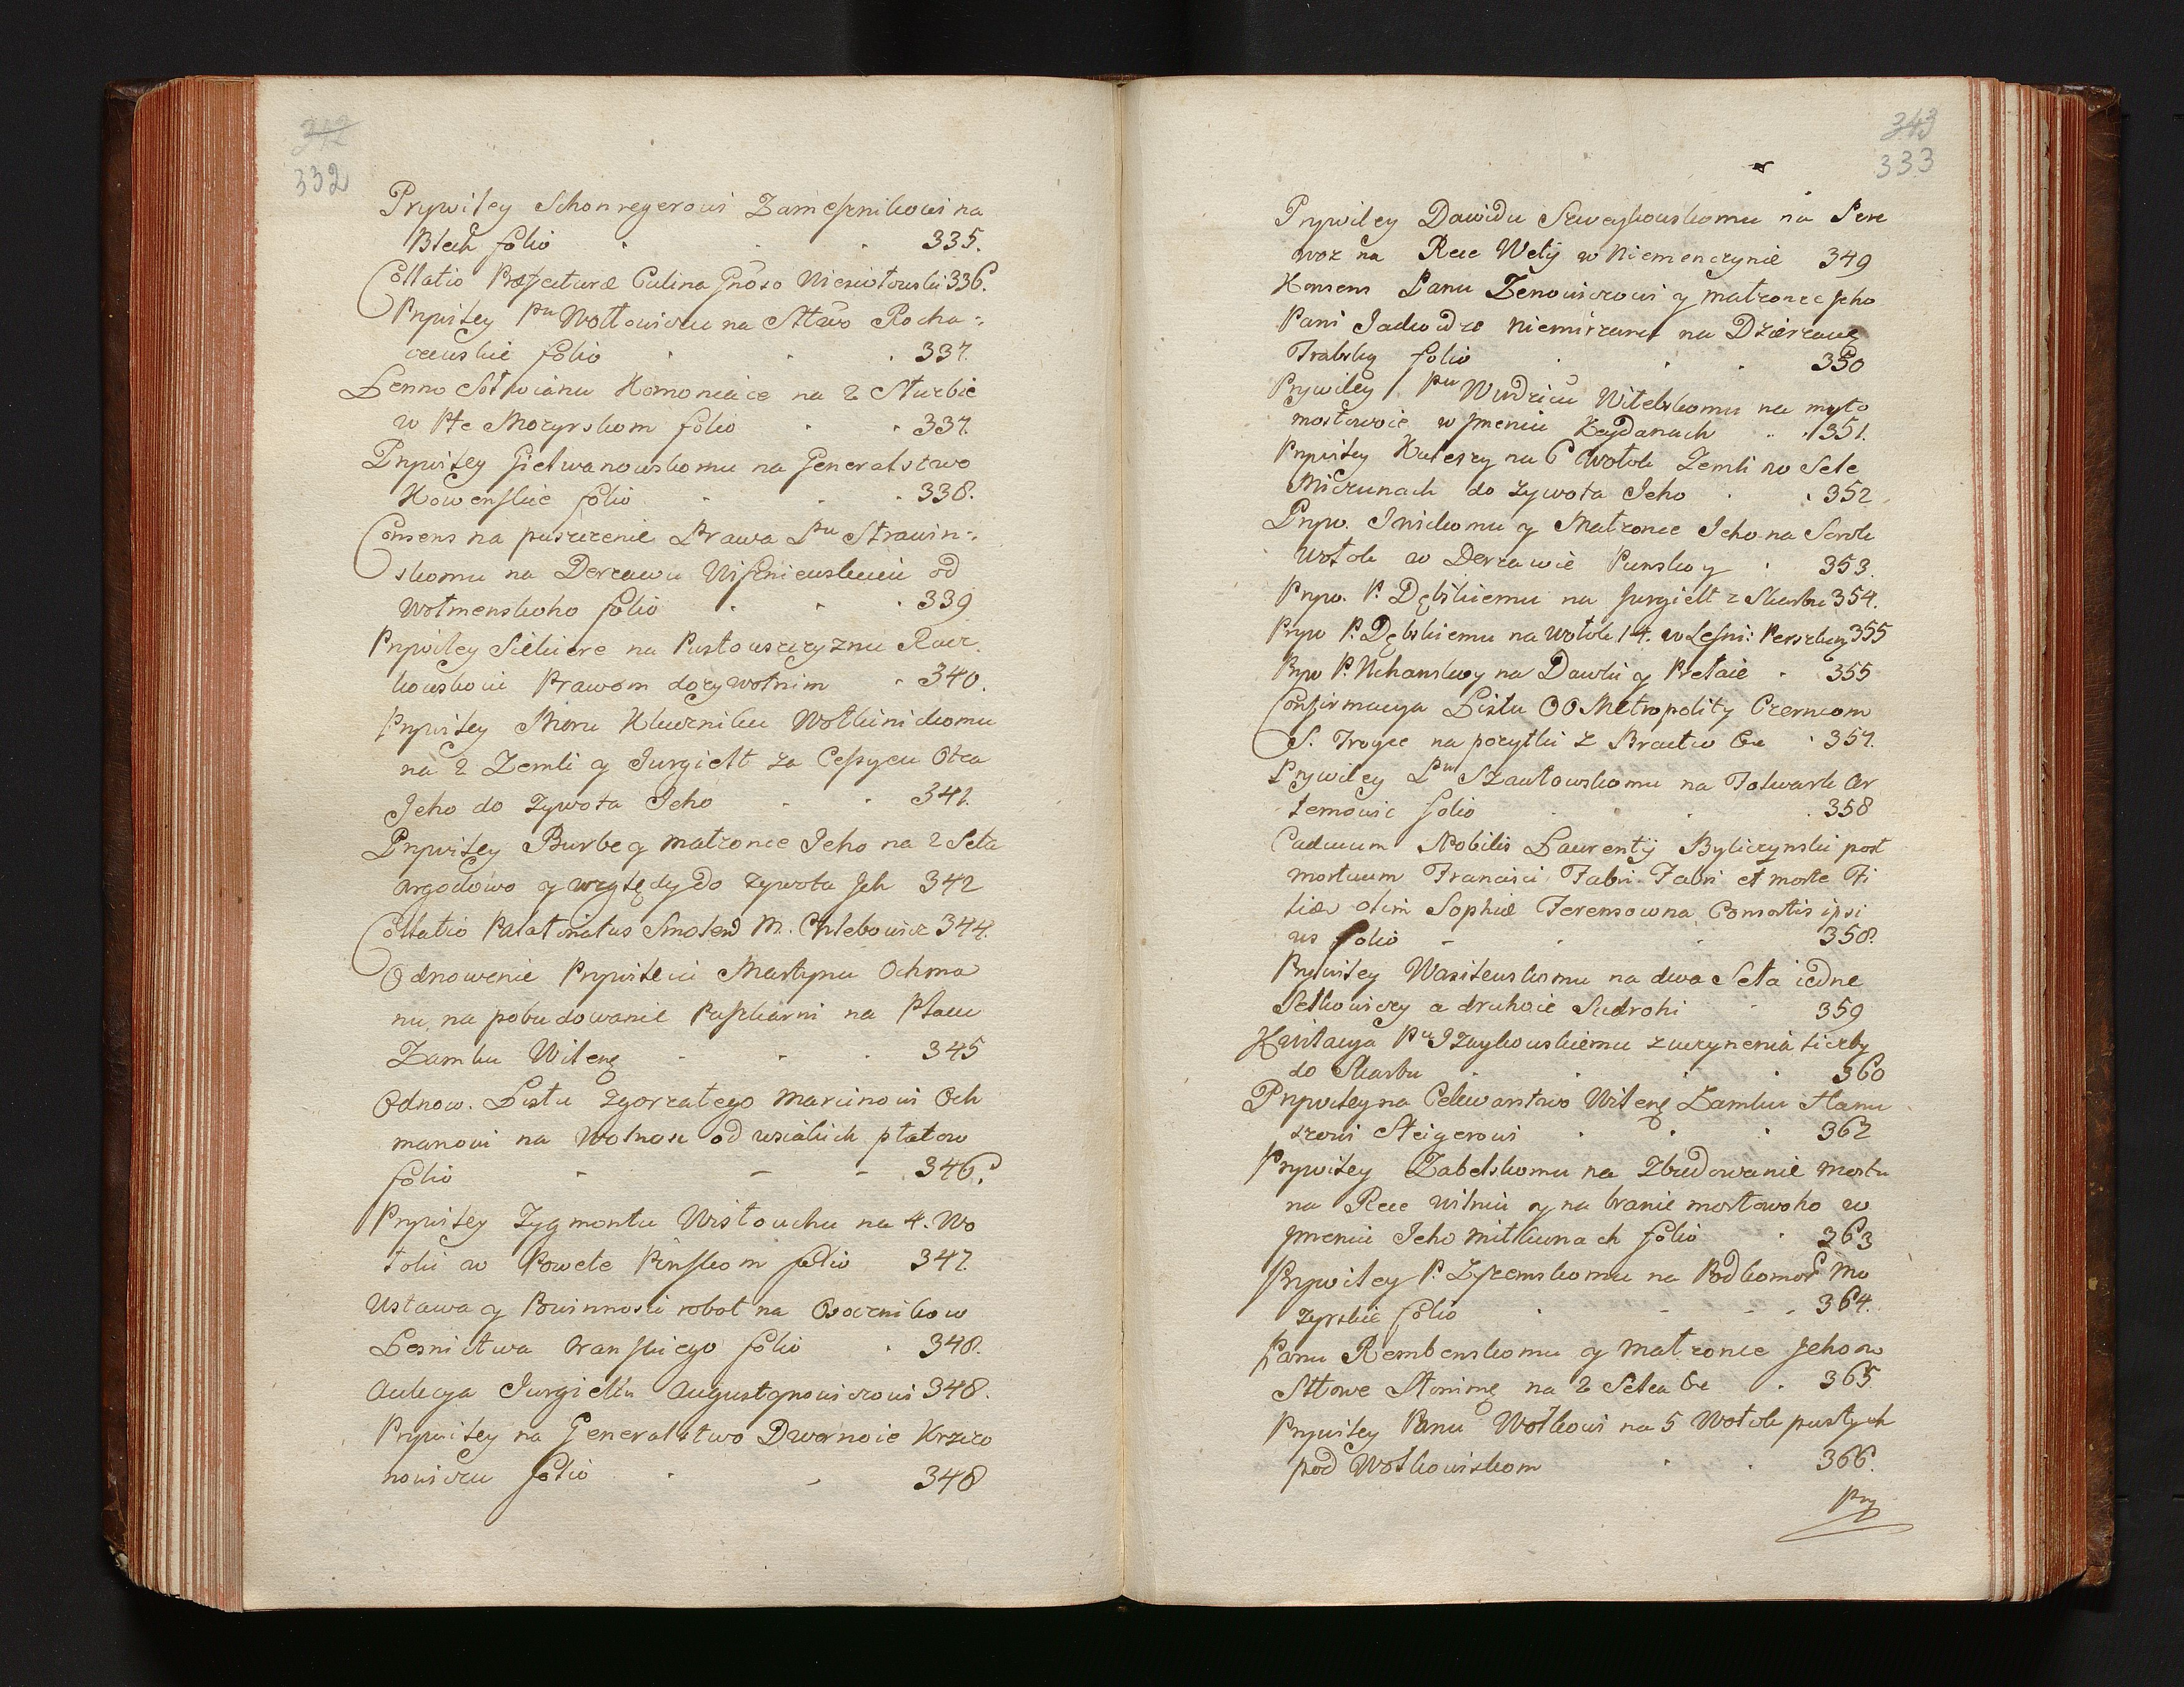 342
332
Prywiley Schonregerowi Zameſznikowi na
Blech folio . . . 335.
Collatio Præfecturæ Culina Gnoso Niesiołowski 336.
Prywiley Pu Wołłowiczu na Sttwo Rocha-:
czewskie folio . . . 337.
Lenno Sołwianu Komoniace na 2 Służbie
w Pte Mozyrskom folio . . 337.
Prywiley Gielwanowskomu na Generalstwo
Kowenſkie folio . . . 338.
Consens na puszczenie Prawa Pu Strawin-:
skomu na Derzawu Wiſzniewskuiu od
Wołmenskoho folio . . . 339
Prywiley Sielicre na Pustowszczyznu Racz
kowskoiu Prawom dożywotnim . 340.
Prywiley Moru Kluczniku Wołkinickomu
na 2 Zemli y Jurgielt za Ceſsyeu Otca
Jeho do Zywota Jeho . . 341.
Prywiley Burbe y małzonce Jeho na 2 Seła
Argodowo y względy do zywota Jch 342
Collatio Palatinatus Smolen M. Chlebowicz 344.
Odnowenie Prywileiu Martynu Ochma
nu, na pobudowanie Puſzkarni na Placu
Zamku Wileng . . . 345
Odnow. Listu zgorzałego Marcinowi Och
manowi na Wolnosc od wsiakich płatow
folio - - - 346.
Prywiley Zygmontu Wisłouchu na 4. Wo
łoki w Powete Pinſkom folio 347.
Ustawa y Powinnosci robot na Osocznikow
Lesnictwa Oranſkiego folio . 348.
Aukcya Jurgieltu Augustynowiczowi 348.
Prywiley na Generalstwo Dwornoie Krzczo
nowiczu folio . - 348
343
333
Prywiley Dawidu Szwaykowskomu na Pere
woz na Rece Wely w Niemenczynie 349
Konsens Panu Zenowiczowi y małzonce Jeho
Pani Jadwidze Niemirzance na Dzierzawę
Trabskę folio . . . 350
Prywiley Pu Wudzicu Witebskomu na myto
mostowoie w Jmeniu Keydanach . . 351.
Prywiley Kulerzy na 6 Wołok Zemli w Sele
Miczunach do zywota Jeho . . 352
Pryw. Jnickomu y Małzonce Jeho na Sorok
Wołok w Derzawie Punskoy . 353.
Pryw. P. Dębskiemu na Jurgielt z Skarbu 354.
Pryw P. Dębskiemu na Wołok 14. w Leśni: Perszkoy 355
Pryw P. Uchanskoy na Dawki y Pretaie . 355
Confirmacya Listu OO Metropolity Czerncom
S. Troyce na pozytki z Bractw &c . 357.
Prywiley Pu Szawłowskomu na Folwark Ar
temowic folio . . . 358
Caducum Nobilis Laurentÿ Byliczynski post
mortuum Francisci Fabri Fabri et morte Fi
liæ olim Sophiæ Feremowna Consortis ipsi
us folio - . . 358.
Prywiley Wasilewskomu na dwa Seła iedne
Selkowiczy a druhoie Sudrohi . 359
Kwitacya Pu Jzaykowskiemu z uczynenia liczby
do Skarbu . . . . 360
Prywiley na Celwarstwo Wileng Zamku Hanu
szowi Steigerowi . . . 362
Prywiley Zabelskomu na Zbudowanie Mostu
na Rece Wilniu y na branie mostowoho w
Jmeniu Jeho Mitkunach folio . 363
Prywiley P. Lyſzemskomu na Podkomor Mo
zyrskie folio . - - . 364.
Panu Rembenskomu y małzonce Jeho w
Sttowe Słonimę na 2 Selca &c . 365
Prywiley Panu Wołkowi na 5 Wołok pustych
pod Wołkowiskom . . 366.
Pry